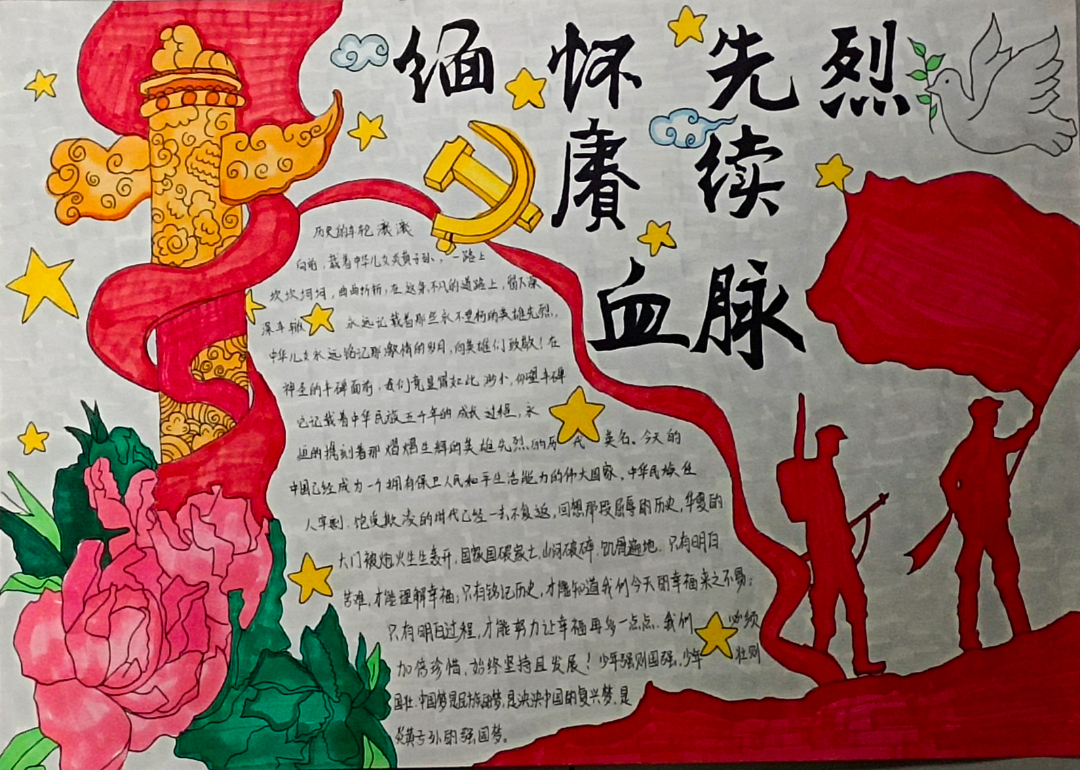 缅怀先烈
赓续
血脉
历史的车轮滚滚
向前，载着中华儿女炎黄子孙，一路上
坎坎坷坷，曲曲折折，在这条不凡的道路上，留下深
深车辙 永远记载着那些永不坚朽的英雄先烈。
中华儿女永远铭记那激情的岁月，向英雄们致敬！在
神圣的丰碑面前，我们竟显得如此渺小，仰望丰碑
它记载着中华民族五千年的成长过程，永
远的镌刻着那熠熠生辉的英雄先烈们的历代英名。今天的
中国已经成为一个拥有保卫人民和平生活能力的伟大国家，中华民族任
人宰割，饱受欺凌的时代已经一去不复返，回想那段屈辱的历史，华夏的
大门被炮火生生轰开，国家国破家亡，山河破碎，饥骨遍地，只有明白
苦难，才能理解幸福；只有铭记历史，才能知道我们今天的幸福来之不易；
只有明白过程，才能努力让幸福再多一点点，我们必须
加倍珍惜，始终坚持且发展！少年强则国强，少年壮则
国壮，中国梦是民族的梦，是泱泱中国的复兴梦，是
炎黄子孙的强国梦。